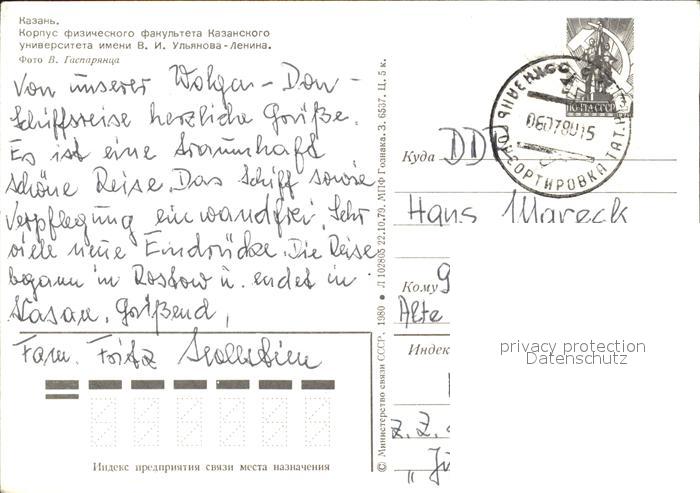 Казань.
Корпус физического факультета Казанского
университета имени В. И. Ульянова-Ленина.
Фото В. Гаспарянца
Von unserer Wolga-Don-
Schiffsreise herzliche Grüße.
Es ist eine traumhaft
schöne Reise. Das Schiff sowie
Verpflegung einwandfrei. Sehr
viele neue Eindrücke. Die Reise
begann in Rostow u. endet in
Kasan. Grüßend,
Fam. Fritz
Индекс предприятия связи места назначения
© Министерство связи СССР, 1980 ● Л 102805 22.10.79. МПФ Гознака. З. 6537. Ц. 5 к.
ПОЧТА СССР
06078015
СОРТИРОВКА ТАТ.
Куда DDR
Hans Mareck
Кому
Alte
Индек
privacy protection
Datenschutz
z. Z.